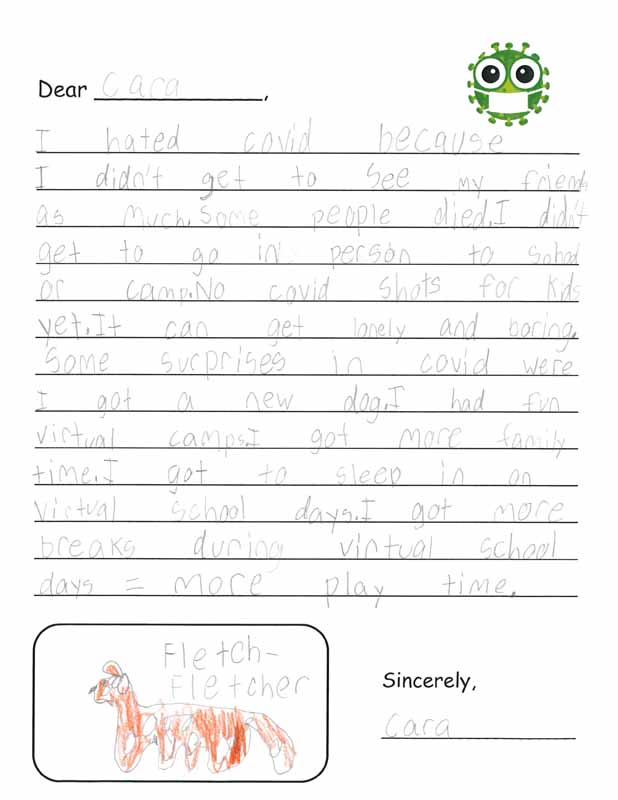 Dear Cara,
I hated covid because
I didn't get to see my friends
as much. Some people died. I didn't
get to go in person to school
or camp. No covid shots for kids
yet. It can get lonely and boring.
Some surprises in covid were
I got a new dog. I had fun
virtual camps. I got more family
time. I got to sleep in on
virtual school days. I got more
breaks during virtual school
days = more play time.
Fletch-
Fletcher
Sincerely,
Cara